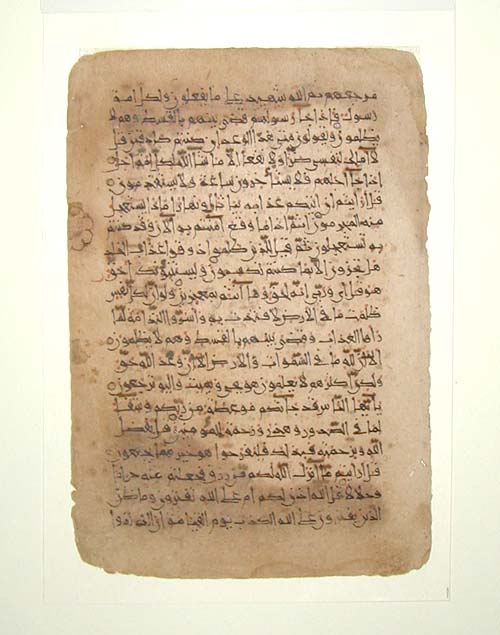 مرجعهم ثم الله شهيد على ما يفعلون ولكل امة
رسول فاذا جا رسولهم قضى بينهم بالقسط وهم لا
يظلمون ويقولون متى هذا الوعد ان كنتم صدقين قل
لا املك لنفسي ضرا ولا نفعا الا ما شا الله لكل امة اجل
اذا جا اجلهم فلا يستاخرون ساعة ولا يستقدمون
قل ارايتم ان اتيكم عذابه بياتا او نهارا ماذا يستعجل
منه المجرمون اثم اذا ما وقع امنتم به الان وقد كنتم
به تستعجلون ثم قيل للذين ظلموا ذوقوا عذاب الخلد
هل تجزون الا بما كنتم تكسبون ويستنبونك احق
هو قل اي وربي انه لحق وما انتم بمعجزين ولو ان لكل نفس
ظلمت ما في الارض لافتدت به واسروا الندامة لما
راوا العذاب وقضي بينهم بالقسط وهم لا يظلمون
الا ان لله ما في السموات والارض الا ان وعد الله حق
ولكن اكثرهم لا يعلمون هو يحي ويميت واليه ترجعون
يايها الناس قد جاتكم موعظة من ربكم وشفا
لما في الصدور وهدى ورحمة للمومنين قل بفضل
الله وبرحمته فبذلك فليفرحوا هو خير مما يجمعون
قل ارايتم ما انزل الله لكم من رزق فجعلتم منه حراما
وحلالا قل الله اذن لكم ام على الله تفترون وما ظن
الذين يفترون على الله الكذب يوم القيمة ان الله لذوا